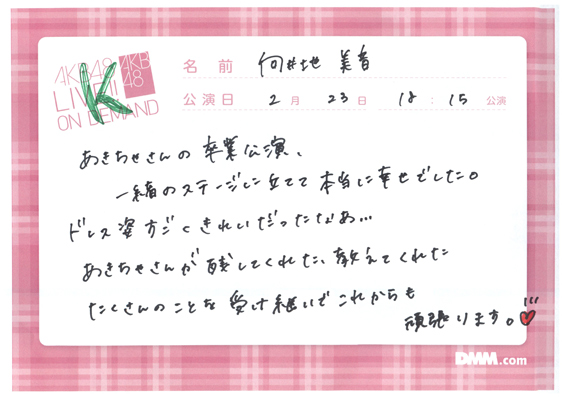 AKB48
LIVE!!
ON DEMAND
AKB
48
K
名 前 向井地 美音
公演日 2 月 23 日 18 : 15 公演
あきちゃさんの 卒業公演、
一緒のステージに立てて 本当に幸せでした。
ドレス姿すごくきれいだったなぁ...
あきちゃさんが 残してくれた、教えてくれた
たくさんのことを 受け継いで これからも
頑張ります。
DMM.com